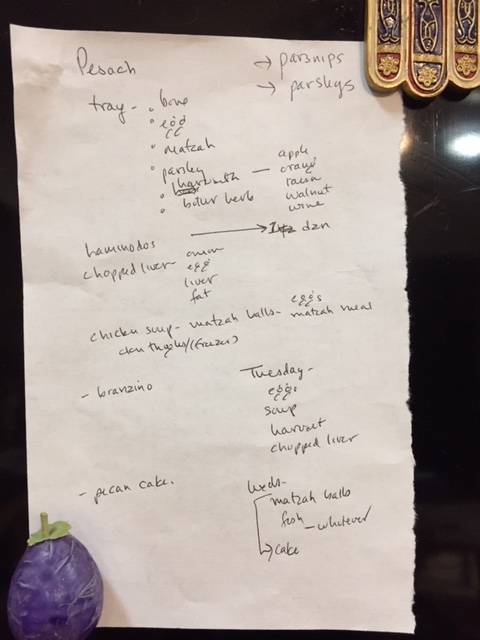 Pesach
→ parsnips
→ parslegs
tray - • bone
• egg
• matzah
• parsley
• — apple
orange
raisin
walnut
wine
• bitter herb
haminodos → dzn
chopped liver - onion
egg
liver
fat
chicken soup - matzah balls - eggs
matzah meal
thighs/(freezer)
- branzino
Tuesday -
eggs
soup
haroset
chopped liver
- pecan cake.
Weds -
matzah balls
fish - whitever
→ cake